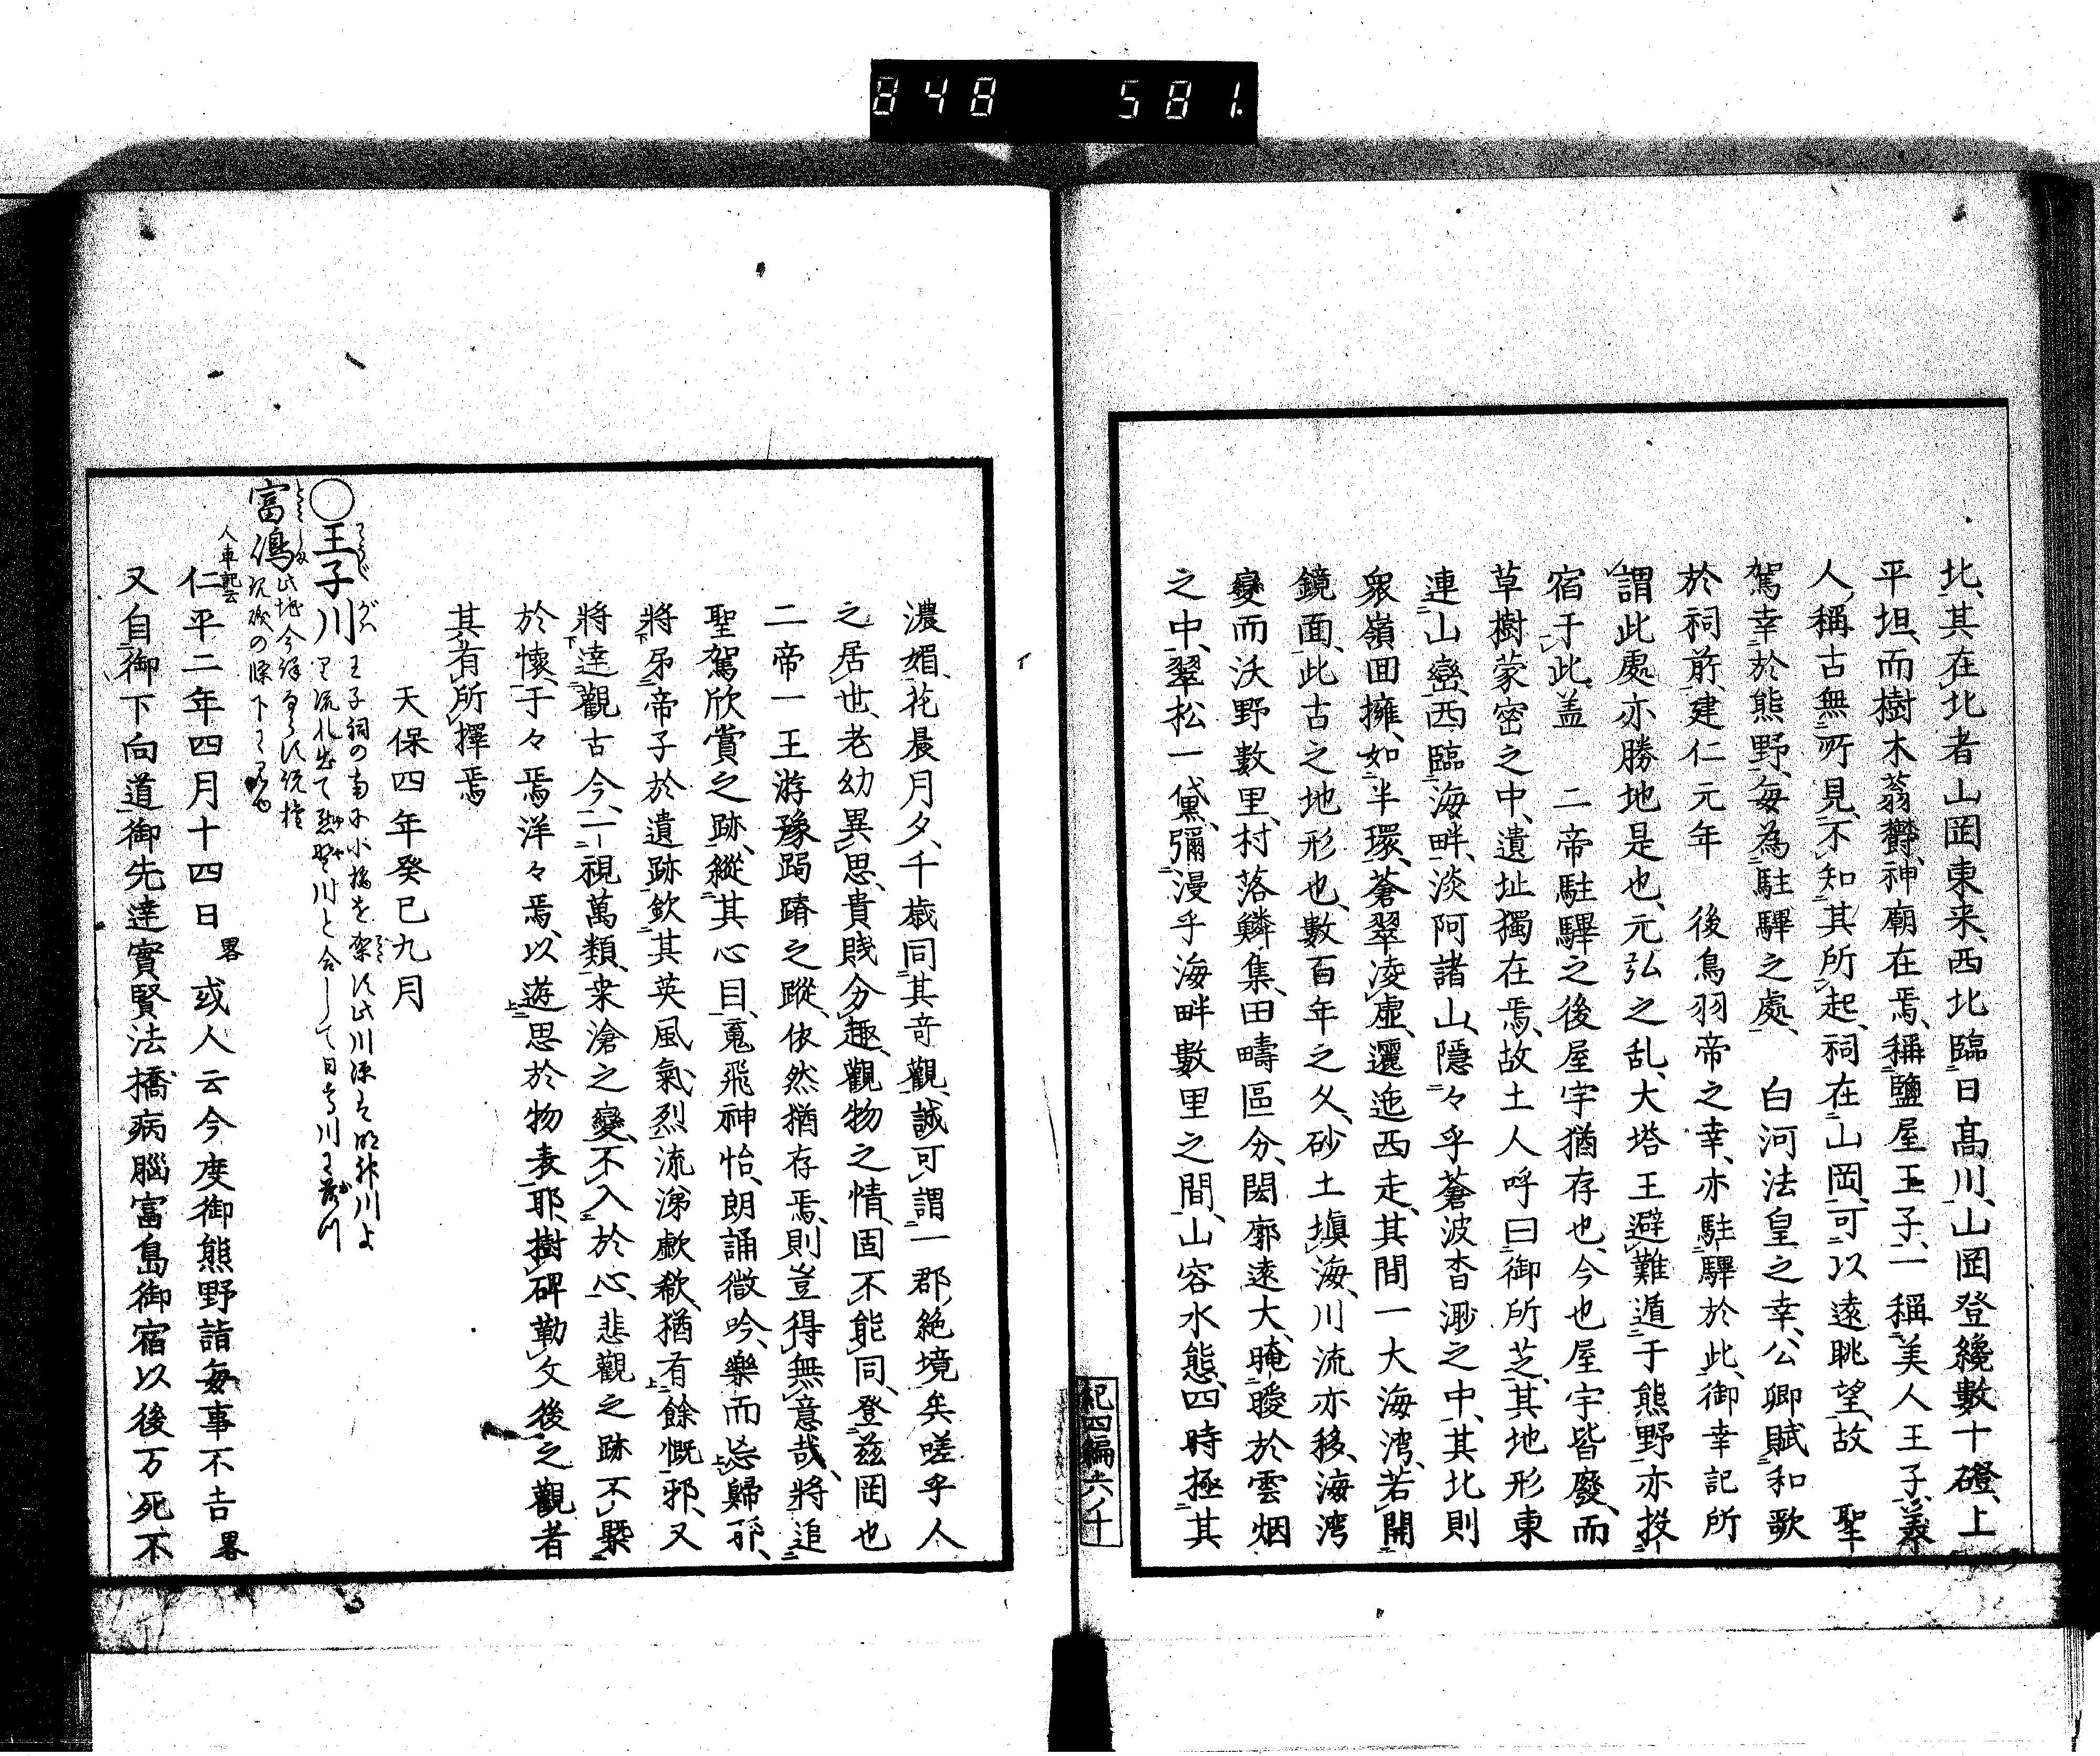 848 581
北、其在北者山岡東来、西北臨日髙川、山岡登纔數十磴、上
平坦、而樹木蓊欝、神廟在焉、稱鹽屋王子、一稱美人王子、
人稱古無所見、不知其所起、祠在山岡、可以遠眺望、故　聖
駕幸於熊野、毎為駐驆之處、　白河法皇之幸、公卿賦和歌
於祠前、建仁元年　後鳥羽帝之幸、亦駐驆於此、御幸記所
謂此處亦勝地是也、元弘之乱、大塔王避難遁于熊野、亦投
宿于此、盖　二帝駐驆之後屋宇猶存也、今也屋宇皆廢、而
草樹蒙密之中、遺址獨在焉、故土人呼曰御所芝、其地形東
連山巒、西臨海畔、淡阿諸山、隱々乎蒼波杳渺之中、其北則
衆嶺回擁、如半環、蒼翠凌虚、邐迤西走、其間一大海湾、若開
鏡面、此古之地形也、數百年之久、砂土塡海、川流亦移、海湾
變而沃野數里、村落鱗集、田疇區分、閎廓遠大、晻曖於雲烟
之中、翠松一黛、彌漫乎海畔數里之間、山容水態、四時極其
紀四編六ノ十
濃媚、花晨月夕、千歳同其奇觀、誠可謂一郡絶境矣嗟乎人
之居世、老幼異思、貴賤分趣、觀物之情、固不能同、登茲岡也
二帝一王游豫跼蹐之蹤、依然猶存焉、則豈得無意哉、將追
聖駕欣賞之跡、縱其心目、䰟飛神怡、朗誦微吟、樂而忘歸耶、
將弔帝子於遺跡、欽其英風氣烈、流涕歔欷、猶有餘慨邪、又
將達觀古今、一視萬類、桒滄之變、不入於心、悲觀之跡不槩
於懷、于々焉洋々焉、以遊思於物表耶、樹碑勒文後之觀者
其有所擇焉
天保四年癸巳九月
○王子川 王子祠の南に小橋を架す此川源を明神川よ
り流れ出て熊野川と合して日高川に落つ
富島
人車記云
仁平二年四月十四日畧或人云今度御熊野詣毎事不吉畧
又自御下向道御先達實賢法橋病腦富島御宿以後万死不